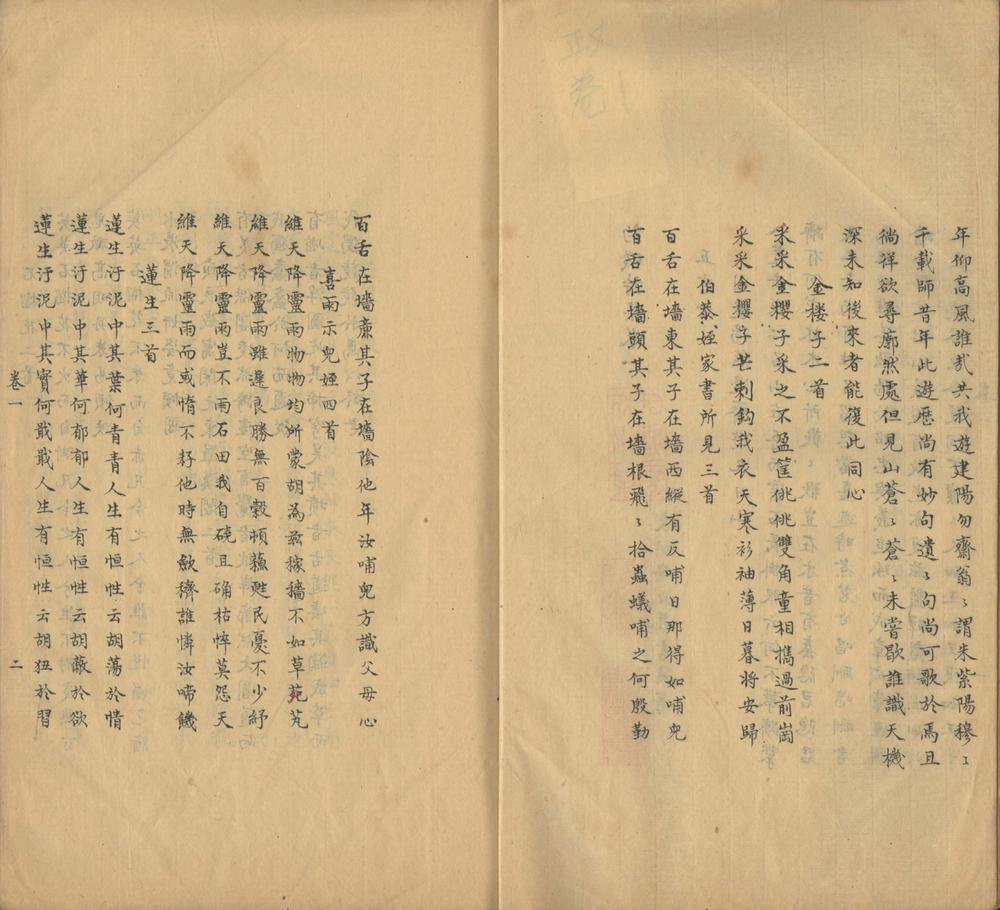 年仰高風誰哉共我遊建陽勿齋翁〻謂朱紫陽穆〻
千載師昔年此遊歷尚有妙句遺〻句尚可歌於焉且
徜徉欲尋廓然處但見山蒼〻蒼〻朱嘗歇誰識天機
深未知後來者能復此同心
金樱子二首
采采金櫻子采之不盈筐佻佻雙角童相㩦過前崗
采采金櫻子芒刺鈎我衣天寒衫袖薄日暮將安歸
伯恭姪家書所見三首
百舌在墻東其子在墻西縱有反哺日那得如哺兒
百舌在墻頭其子在墻根飛〻拾蟲蟻哺之何殷勤
百舌在墻廡其子在墻陰他年汝哺兒方識父母心
喜雨示兒姪四首
維天降靈雨物物均所蒙胡為嘉稼穡不如草苑芃
維天降靈雨雖遲良勝無百穀頓蘓甦民憂不少紓
維天降靈雨豈不雨石田我自磽且确枯悴莫怨天
維天降靈雨而或惰不耔他時無歛穧誰憐汝啼饑
蓮生三首
蓮生汙泥中其葉何青青人生有恒性云胡蕩於情
蓮生汙泥中其華何郁郁人生有恒性云胡蔽於欲
蓮生汙泥中其實何戢戢人生有恒性云胡狃於習
卷一
二